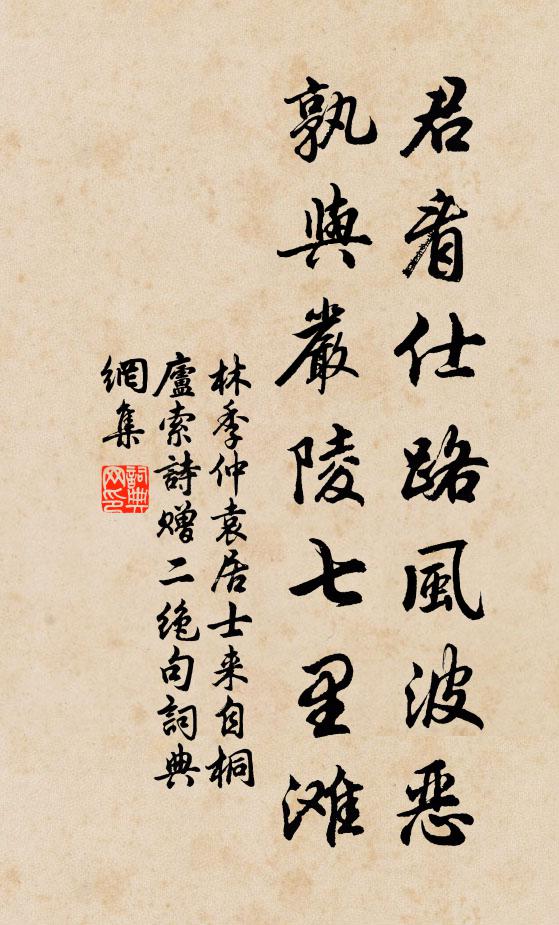 君看仕路風波惡
孰與嚴陵七里滩
林季仲袁居士来自桐
廬索詩贈二绝句詞典
網集
詞典
网印